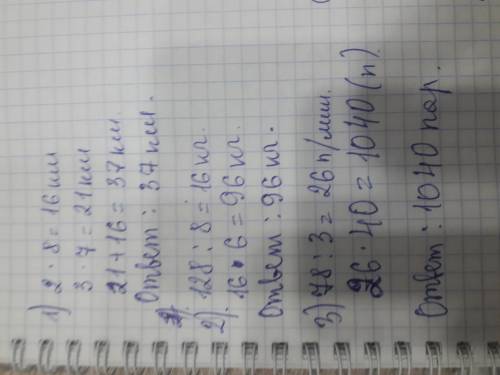 1) 2 · 8 = 16 км
3 · 7 = 21 км
21 + 16 = 37 км
Ответ: 37 км.
2) 128 : 8 = 16 кг.
16 · 6 = 96 кг.
Ответ: 96 кг.
3) 78 : 3 = 26 п/мин.
26 · 40 = 1040 (п).
Ответ: 1040 пар.